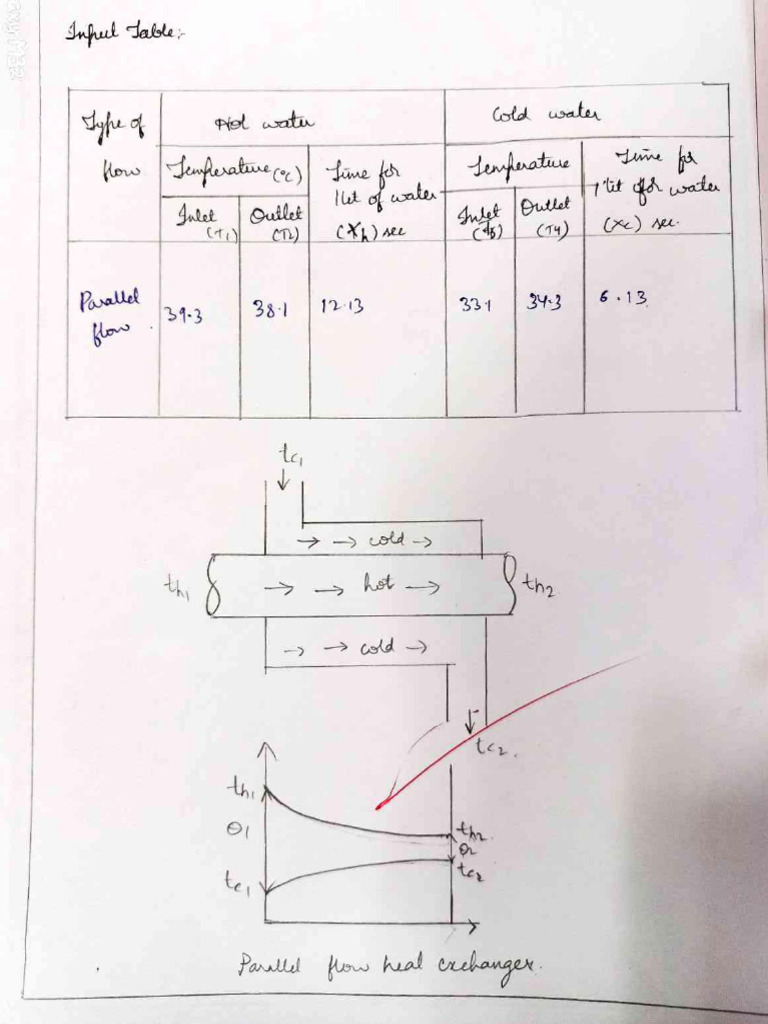 Input Table:-
Type of flow
Hot water
Cold water
Temperature (°C)
Time for 1 lit of water (Xh) sec
Temperature
Time for 1 lit of water (xc) sec.
Inlet (T1)
Outlet (T2)
Inlet
Outlet (T4)
Parallel flow.
39.3
38.1
12.13
33.1
34.3
6.13
tc1
→ → cold →
th1
→ → hot →
th2
→ → cold →
tc2.
th1
θ1
th2
θ2
tc2
tc1
Parallel flow heat exchanger.